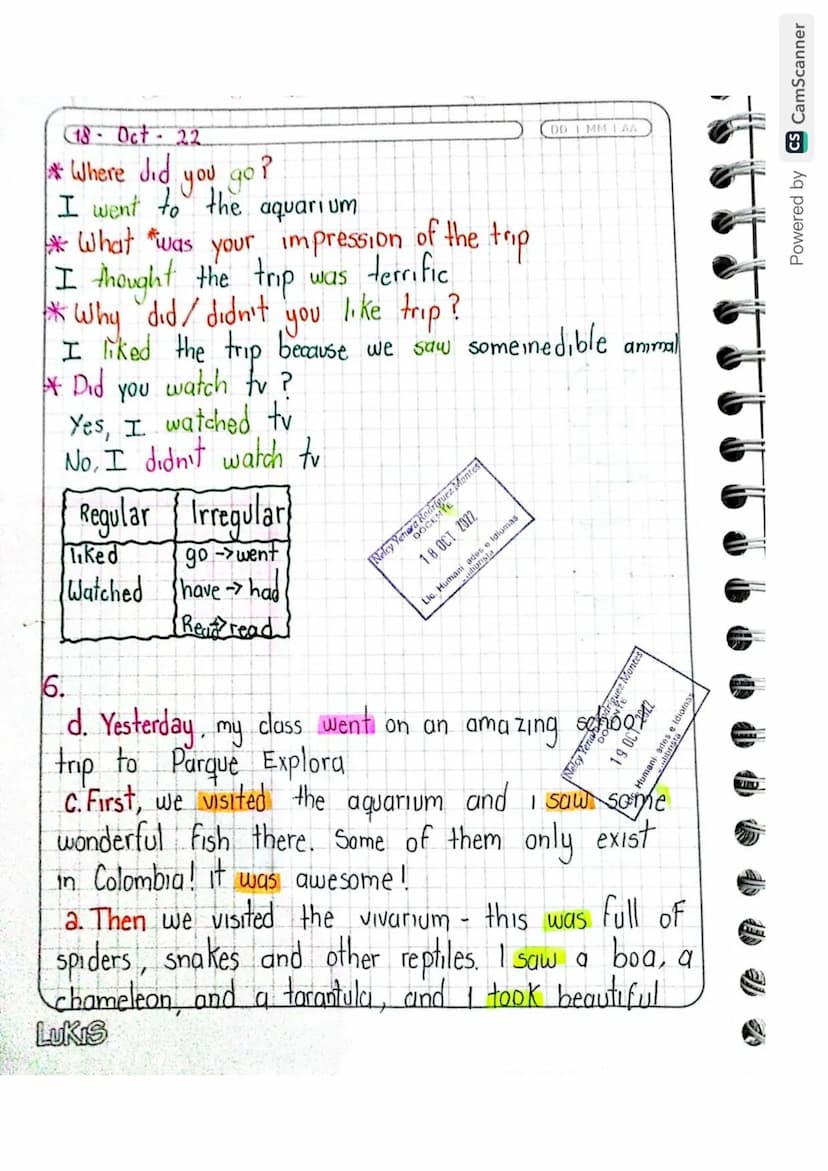 Powered by CS CamScanner
18 - Oct - 22
DD MM AA
* Where did you go?
I went to the aquarium
* What *was your impression of the trip
I thought the trip was terrific
* Why did/didn't you like trip?
I liked the trip because we saw someinedible animal
* Did you watch tv ?
Yes, I watched tv
No, I didn't watch tv
Regular Irregular
liked go -> went
Watched have -> had
Read -> read
Nelcy Yenara Rodríguez Montes
DOCENTE
18 OCT 2022
Lic. Humanidades e Idiomas
6.
d. Yesterday, my class went on an amazing school
trip to Parque Explora
Rodríguez Montes
DOCENTE
19 OCT 2022
Humanidades e Idiomas
c. First, we visited the aquarium and I saw some
wonderful fish there. Some of them only exist
in Colombia! it was awesome!
a. Then we visited the vivarium - this was full of
spiders, snakes and other reptiles. I saw a boa, a
chameleon, and a tarantula, and I took beautiful
LUKIS